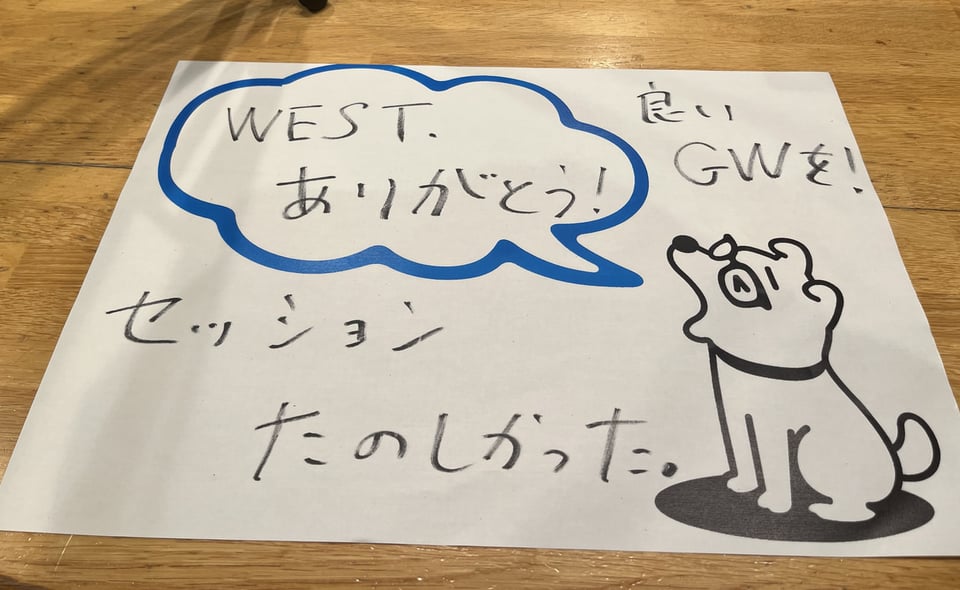 WEST.
ありがとう!
良い
GWを!
セッション
たのしかった。